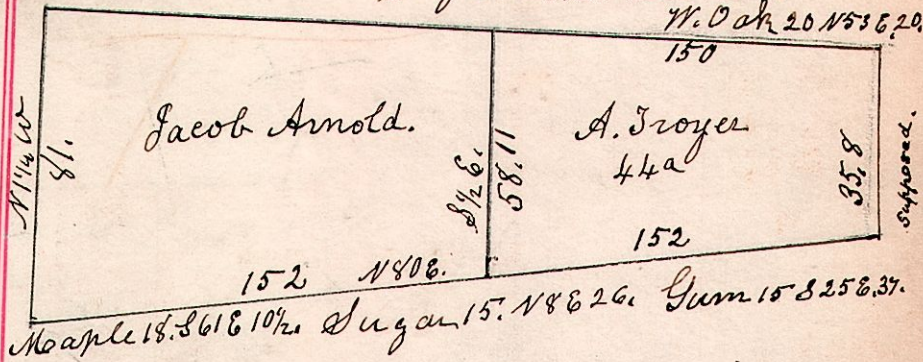 W. Oak 20 N53E, 20.
150
Jacob Arnold.
A. Troyer
44a
N 1¼ W
81.
S ½ E.
58.11
35.8
Supposed.
152 N80E.
152
Maple 18. S61E 10½. Sugar 15. N8E26. Gum 15 S25E.37.